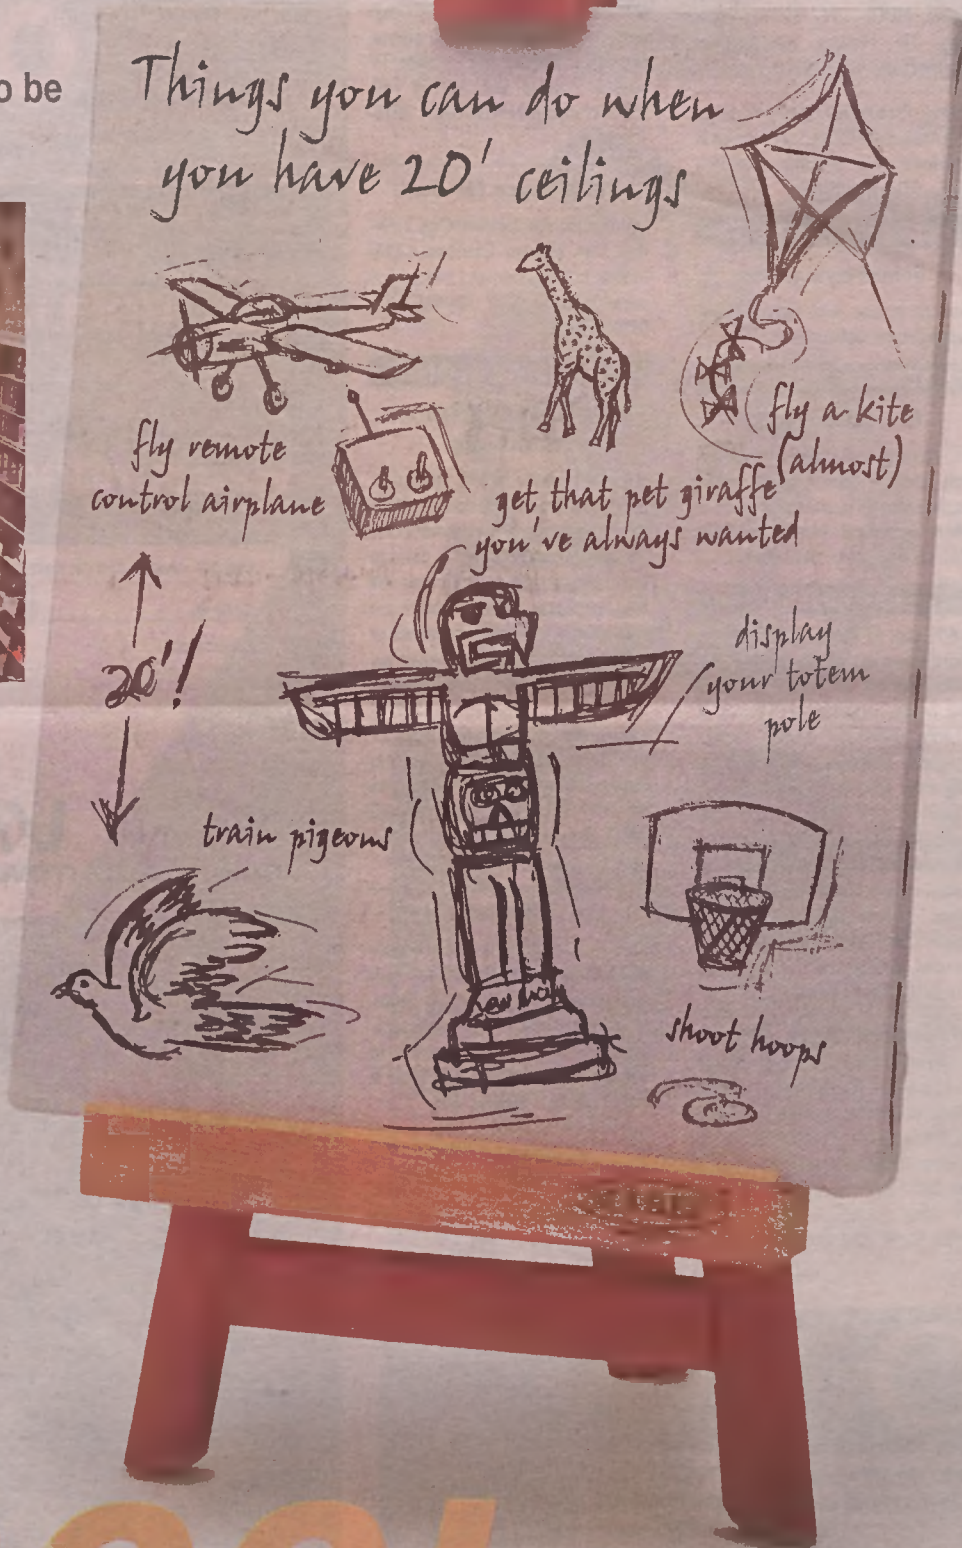 o be
Things you can do when
you have 20' ceilings
fly a kite
(almost)
fly remote
control airplane
get that pet giraffe
you've always wanted
20'!
display
your totem
pole
train pigeons
shoot hoops